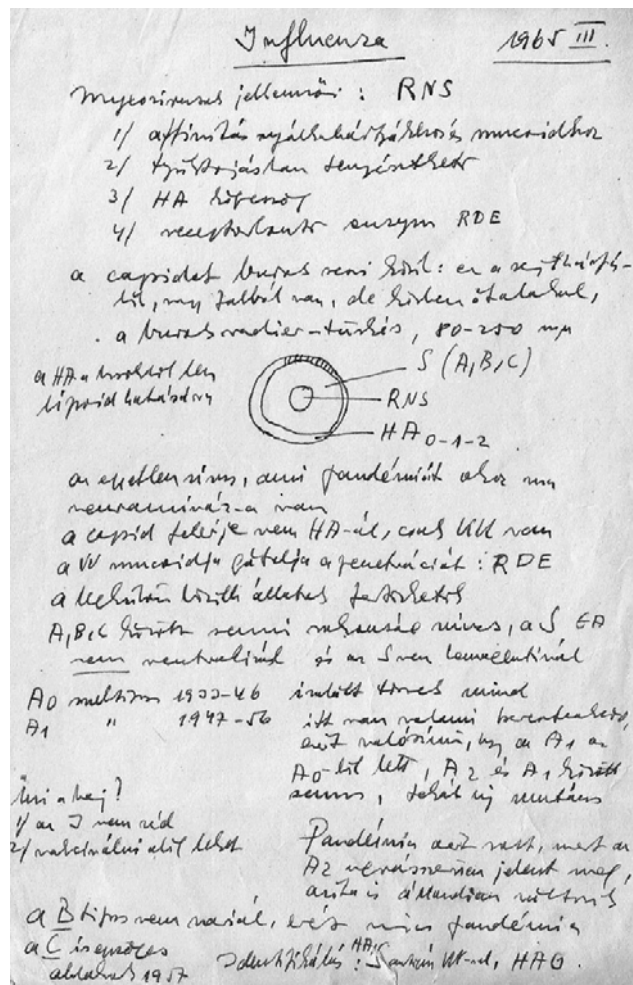 Influenza 1965 III.
Myxovirusok jellemzői: RNS
1/ affinitás nyálkahártyákhoz és mucoidhoz
2/ tyúktojásban tenyészthető
3/ HA képesség
4/ receptorbontó enzym RDE
a capsidet burok veszi körül: ez a sejthártyá-
ból, vagy falból van, de közben átalakul,
a burok radier-tüskés, 80-250 mμ
a HA a burokból lesz
lipoid hatására
S (A,B,C)
RNS
HA 0-1-2
az egyetlen vírus, ami pandémiát okoz
neuraminidáz-a van
a capsid fehérje nem HA-ál, csak KK van
a VV mucoidja gátolja a penetrációt: RDE
a légúton kívül állatok fertőzhetők
A,B,C között semmi rokonság nincs, a S EA
nem neutralizál és az S nem
A0 1933-46 izolált törzsek mind
A1 " 1947-56 itt van valami keresztezés,
ezért valószínű, hogy az A1 az
A0-ból lett, A2 és A1 között
semmi, tehát új mutáns
Mi a baj?
1/ az I nem véd
2/ vakcinálni alig lehet
Pandémia azért volt, mert az
A2 jelent meg,
azóta is állandóan
a B típus nem variál, ezért nincs pandémia
a C is egységes
1957
Identifikálás: HA, S antigén KK-val, HAG.